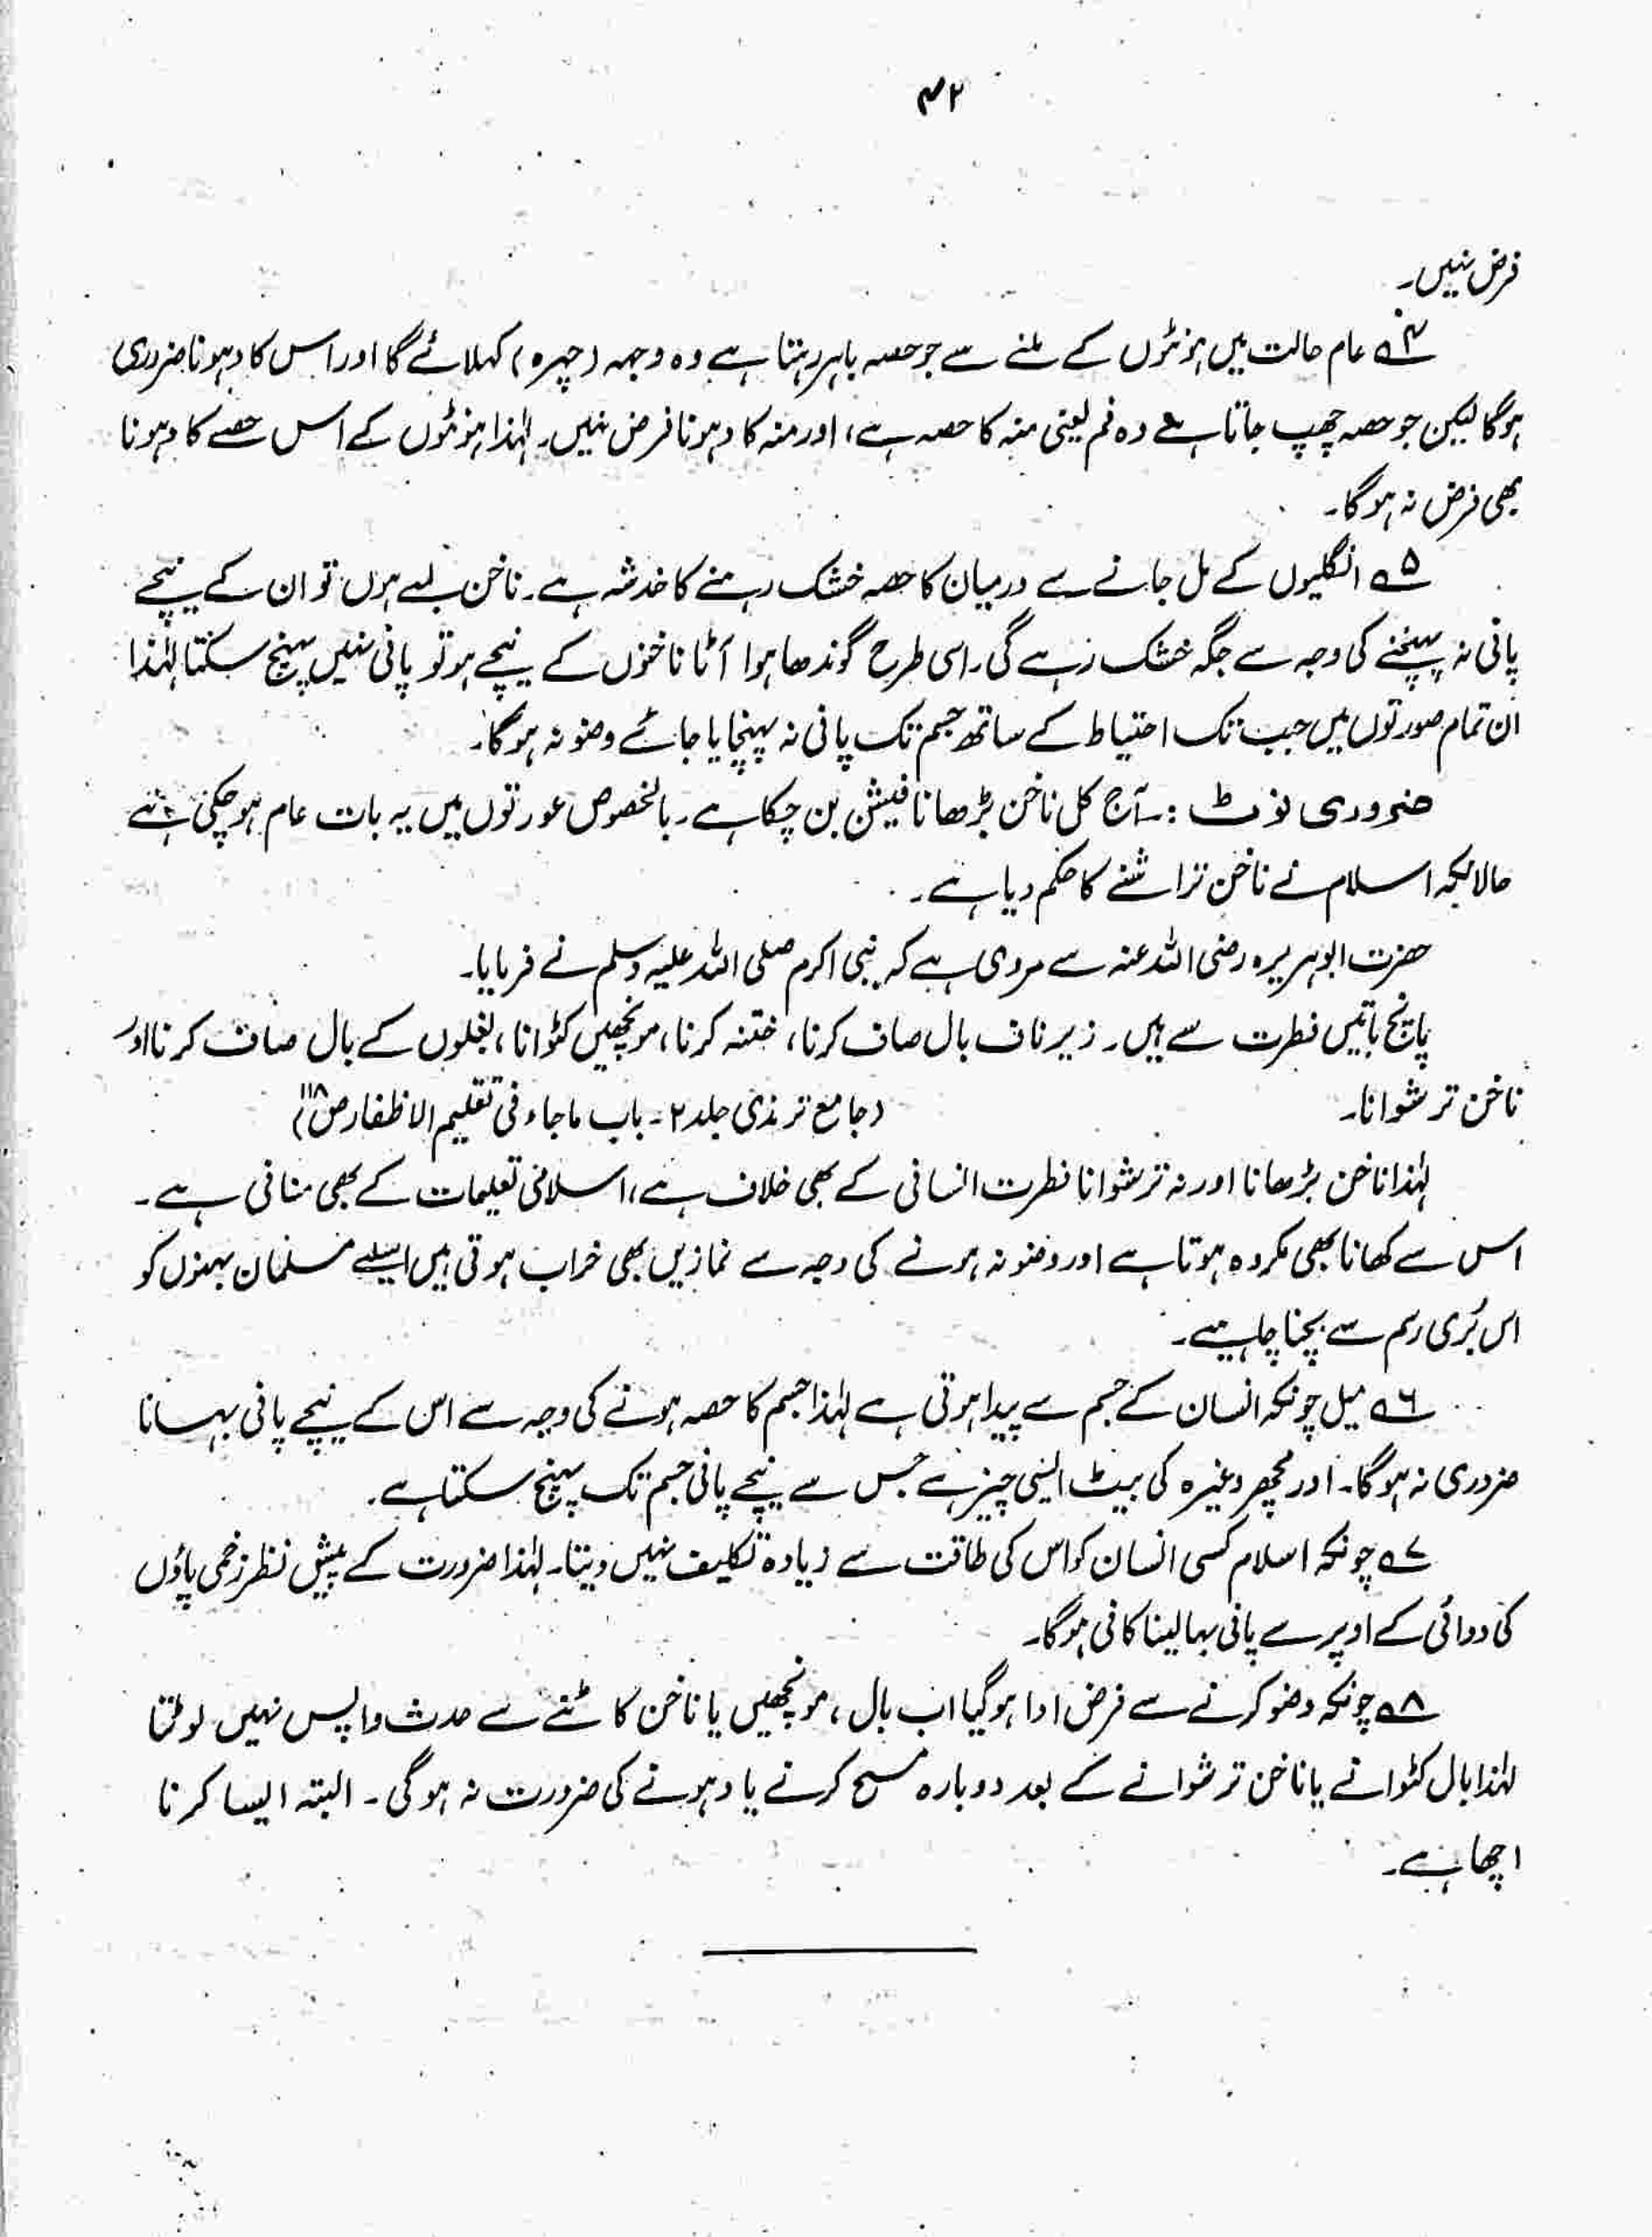 ۴۲
فرض نہیں۔
۴؎ عام حالت میں ہونٹوں کے ملنے سے جو حصہ باہر رہتا ہے وہ وجہہ (چہرہ) کہلائے گا اور اس کا دہونا ضروری
ہوگا لیکن جو حصہ چھپ جاتا ہے وہ فم یعنی منہ کا حصہ ہے، اور منہ کا دہونا فرض نہیں۔ لہٰذا ہونٹوں کے اس حصے کا دہونا
بھی فرض نہ ہوگا۔
۵؎ انگلیوں کے مل جانے سے درمیان کا حصہ خشک رہنے کا خدشہ ہے۔ ناخن لمبے ہوں تو ان کے نیچے
پانی نہ پہنچنے کی وجہ سے جگہ خشک رہے گی۔ اسی طرح گوندھا ہوا آٹا ناخنوں کے نیچے ہو تو پانی نہیں پہنچ سکتا لہٰذا
ان تمام صورتوں میں جب تک احتیاط کے ساتھ جسم تک پانی نہ پہنچایا جائے وضو نہ ہوگا۔
ضروری نوٹ :۔ آج کل ناخن بڑھانا فیشن بن چکا ہے۔ بالخصوص عورتوں میں یہ بات عام ہو چکی ہے
حالانکہ اسلام نے ناخن تراشنے کا حکم دیا ہے۔
حضرت ابوہریرہ رضی اللہ عنہ سے مروی ہے کہ نبی اکرم صلی اللہ علیہ وسلم نے فرمایا۔
پانچ باتیں فطرت سے ہیں۔ زیر ناف بال صاف کرنا، ختنہ کرنا، مونچھیں کٹوانا، بغلوں کے بال صاف کرنا اور
ناخن ترشوانا۔ (جامع ترمذی جلد ۲۔ باب ماجاء فی تقلیم الاظفار ص ۱۱۸)
لہٰذا ناخن بڑھانا اور نہ ترشوانا فطرت انسانی کے بھی خلاف ہے، اسلامی تعلیمات کے بھی منافی ہے۔
اس سے کھانا بھی مکروہ ہوتا ہے اور وضو نہ ہونے کی وجہ سے نمازیں بھی خراب ہوتی ہیں اسلیے مسلمان بہنوں کو
اس بُری رسم سے بچنا چاہیے۔
۶؎ میل چونکہ انسان کے جسم سے پیدا ہوتی ہے لہٰذا جسم کا حصہ ہونے کی وجہ سے اس کے نیچے پانی بہانا
ضروری نہ ہوگا۔ اور مچھر وغیرہ کی بیٹ ایسی چیز ہے جس سے نیچے پانی جسم تک پہنچ سکتا ہے۔
۷؎ چونکہ اسلام کسی انسان کو اس کی طاقت سے زیادہ تکلیف نہیں دیتا۔ لہٰذا ضرورت کے پیش نظر زخمی پاؤں
کی دوائی کے اوپر سے پانی بہا لینا کافی ہوگا۔
۸؎ چونکہ وضو کرنے سے فرض ادا ہو گیا اب بال، مونچھیں یا ناخن کاٹنے سے حدث واپس نہیں لوٹتا
لہٰذا بال کٹوانے یا ناخن ترشوانے کے بعد دوبارہ مسح کرنے یا دہونے کی ضرورت نہ ہوگی۔ البتہ ایسا کرنا
اچھا ہے۔